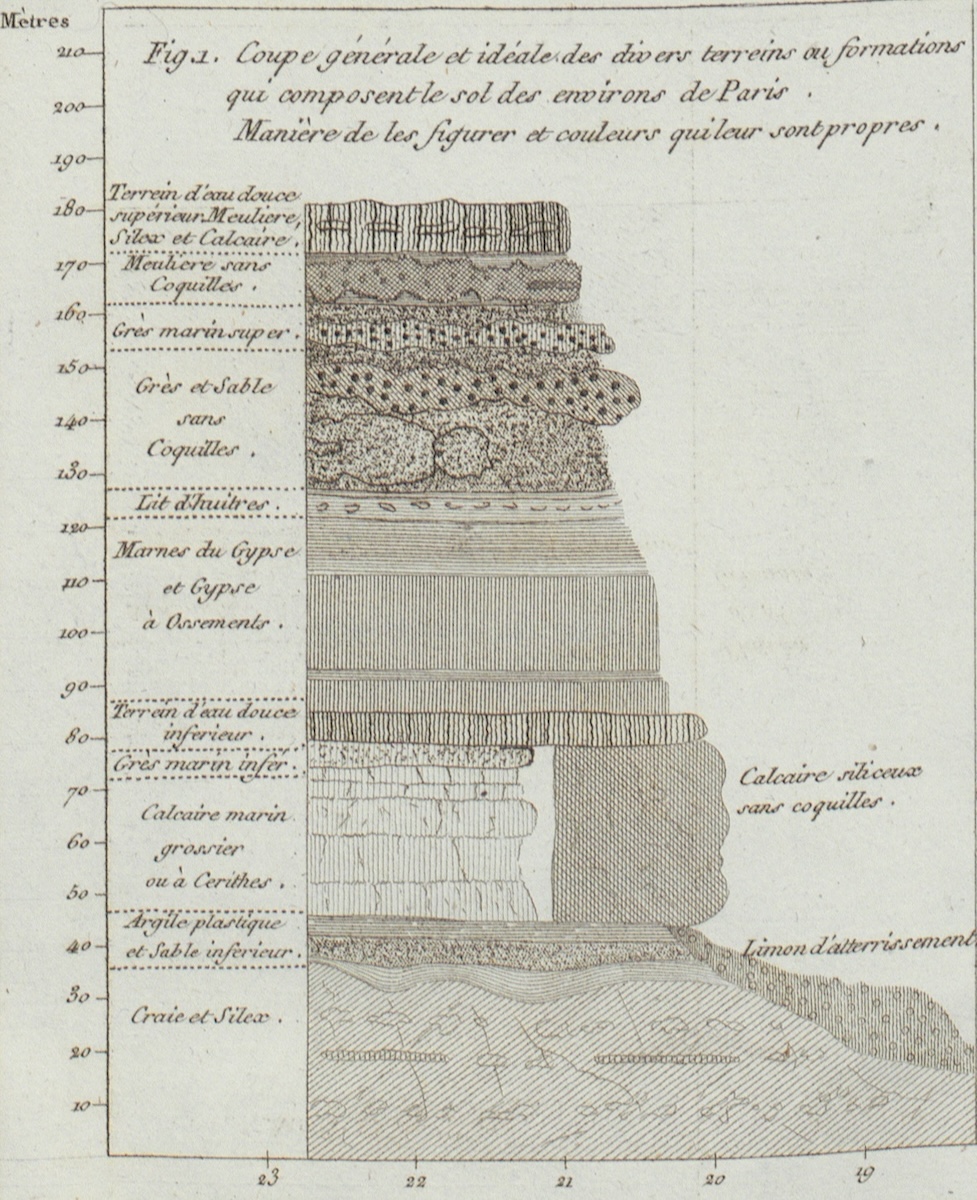 Mètres
Fig.1. Coupe générale et idéale des divers terreins ou formations
qui composent le sol des environs de Paris .
Manière de les figurer et couleurs qui leur sont propres .
210
200
190
180
170
160
150
140
130
120
110
100
90
80
70
60
50
40
30
20
10
Terrein d'eau douce
supérieur. Meuliere,
Silex et Calcaire.
Meulière sans
Coquilles .
Grès marin super .
Grès et Sable
sans
Coquilles .
Lit d'huitres .
Marnes du Gypse
et Gypse
à Ossements .
Terrein d'eau douce
inferieur .
Grès marin infér .
Calcaire marin
grossier
ou à Cerithes .
Argile plastique
et Sable inferieur .
Craie et Silex .
Calcaire siliceux
sans coquilles .
Limon d'atterrissement
23 22 21 20 19